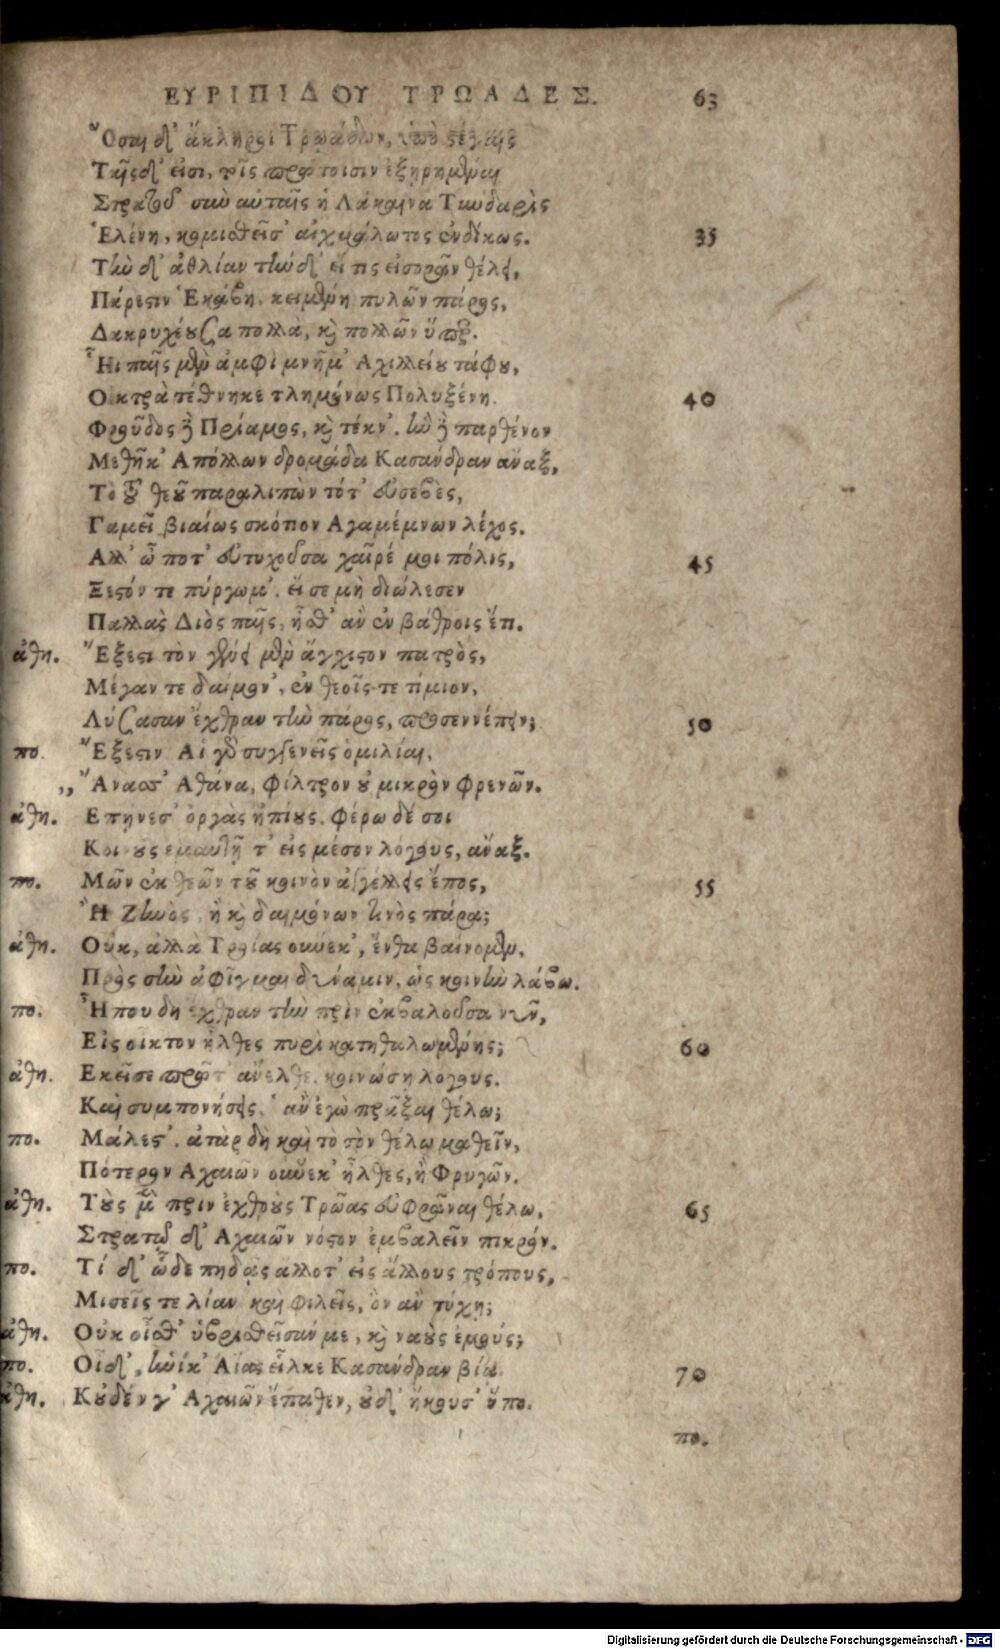 ΕΥΡΙΠΙΔΟΥ ΤΡΩΑΔΕΣ. 63
Ὅσαι δ' ἄκληροι Τρωάδων, ὑπὸ στέγαις
Ταῖσδ' εἰσι, τοῖς πρώτοισιν ἐξῃρημέναι
Στρατοῦ· σὺν αὐταῖς ἡ Λάκαινα Τυνδαρὶς
Ἑλένη, νομισθεῖσ' αἰχμάλωτος ἐνδίκως. 35
Τὴν δ' ἀθλίαν τήνδ' εἴ τις εἰσορᾶν θέλει,
Πάρεστιν Ἑκάβη, κειμένη πυλῶν πάρος,
Δακρυχέουσα πολλὰ, καὶ πολλῶν ὕπερ.
Ἧι παῖς μὲν ἀμφὶ μνῆμ' Ἀχιλλείου τάφου,
Οἰκτρὰ τέθνηκε τλημόνως Πολυξένη. 40
Φροῦδος δὲ Πρίαμος, καὶ τέκν'. ἣν δὲ παρθένον
Μεθῆκ' Ἀπόλλων δρομάδα Κασάνδραν ἄναξ,
Τὸ τοῦ θεοῦ παραλιπὼν τότ' εὐσεβὲς,
Γαμεῖ βιαίως σκότιον Ἀγαμέμνων λέχος.
Ἀλλ' ὦ ποτ' εὐτυχοῦσα χαῖρέ μοι πόλις, 45
Ξεστόν τε πύργωμ'. εἴ σε μὴ διώλεσεν
Παλλὰς Διὸς παῖς, ἦσθ' ἂν ἐν βάθροις ἔτι.
ἀθη. Ἔξεστι τὸν γένει μὲν ἄγχιστον πατρὸς,
Μέγαν τε δαίμον', ἐν θεοῖς τε τίμιον,
Λύσασαν ἔχθραν τὴν πάρος, προσεννέπειν; 50
πο. Ἔξεστιν· Αἱ γὰρ συγγενεῖς ὁμιλίαι,
,, Ἄνασσ' Ἀθάνα, φίλτρον οὐ μικρὸν φρενῶν.
ἀθη. Ἐπῄνεσ' ὀργὰς ἠπίους. φέρω δέ σοι
Κοινοὺς ἐμαυτῇ τ' εἰς μέσον λόγους, ἄναξ.
πο. Μῶν ἐκ θεῶν του καινὸν ἀγγέλλεις ἔπος, 55
Ἢ Ζηνὸς, ἢ καὶ δαιμόνων τινὸς πάρα;
ἀθη. Οὔκ, ἀλλὰ Τροίας οὕνεκ', ἔνθα βαίνομεν.
Πρὸς σὴν ἀφῖγμαι δύναμιν, ὡς κοινὴν λάβω.
πο. Ἦ που δὴ ἔχθραν τὴν πρὶν ἐκβαλοῦσα νῦν,
Εἰς οἶκτον ἦλθες πυρὶ κατῃθαλωμένης; 60
ἀθη. Ἐκεῖσε πρῶτ' ἄνελθε. κοινώσῃ λόγους.
Καὶ συμπονήσεις ἂν ἐγὼ πρᾶξαι θέλω;
πο. Μάλιστ'. ἀτὰρ δὴ καὶ τὸ σὸν θέλω μαθεῖν,
Πότερον Ἀχαιῶν οὕνεκ' ἦλθες, ἢ Φρυγῶν.
ἀθη. Τοὺς μὲν πρὶν ἐχθροὺς Τρῶας εὐφρᾶναι θέλω, 65
Στρατῷ δ' Ἀχαιῶν νόστον ἐμβαλεῖν πικρόν.
πο. Τί δ' ὧδε πηδᾷς ἄλλοτ' εἰς ἄλλους τρόπους,
Μισεῖς τε λίαν καὶ φιλεῖς, ὃν ἂν τύχῃ;
ἀθη. Οὐκ οἶσθ' ὑβρισθεῖσάν με, καὶ ναοὺς ἐμούς;
πο. Οἶδ', ἡνίκ' Αἴας εἷλκε Κασάνδραν βίᾳ. 70
ἀθη. Κοὐδέν γ' Ἀχαιῶν ἔπαθεν, οὐδ' ἤκουσ' ὕπο.
πο.
Digitalisierung gefördert durch die Deutsche Forschungsgemeinschaft - DFG